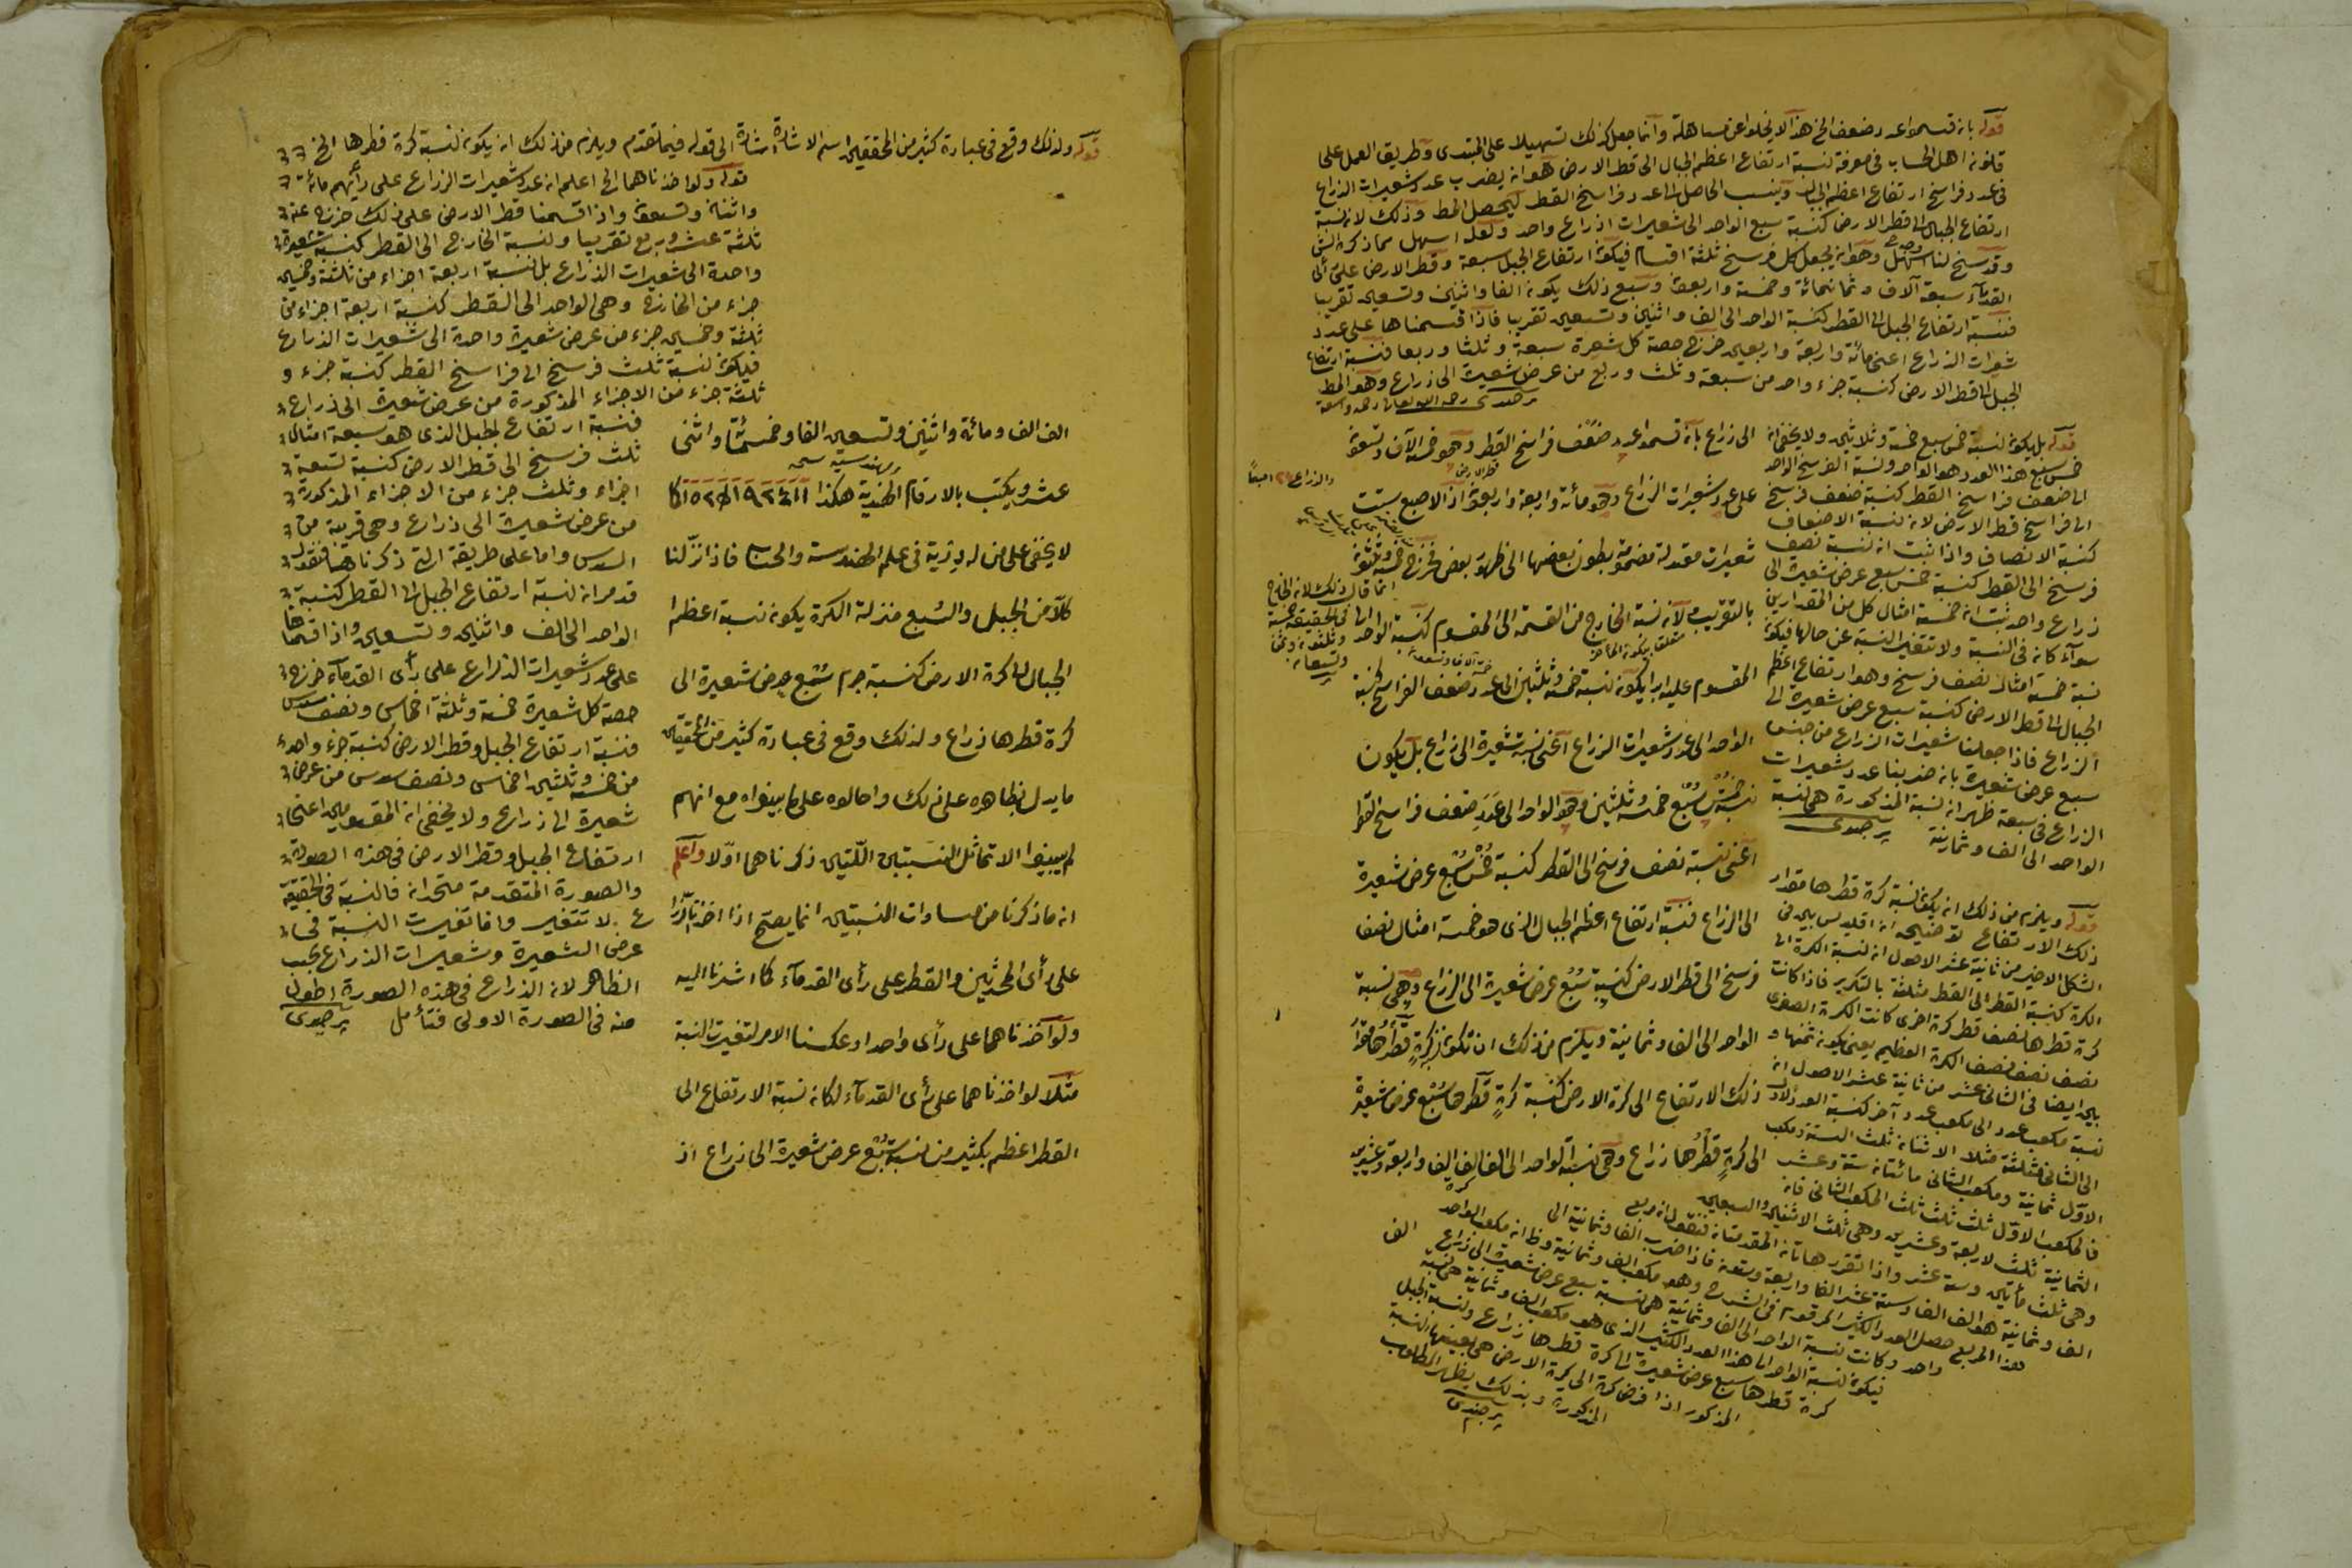 قوله بانه قسموا عدد ضعف الخ هذا لا يخلوا عن مساهلة وانما جعل كذلك تسهيلا على المبتدى وطريق العمل على
قانون اهل الحساب فى معرفة نسبة ارتفاع اعظم الجبال الى قطر الارض هو ان يضرب عدد شعيرات الذراع
فى عدد فراسخ ارتفاع اعظم الجبال وينسب الحاصل الى عدد فراسخ القطر ليحصل المط وذلك لان نسبة
ارتفاع الجبال الى قطر الارض كنسبة سبع الواحد الى شعيرات ذراع واحد ولعله اسهل مما ذكره الش
وقد سنح لنا وجه اسهل وهو ان يجعل كل فرسخ ثلثة اقسام فيكون ارتفاع الجبل سبعة وقطر الارض على رأى
القدمآء سبعة آلاف وثمانمائة وخمسة واربعون وسبع ذلك يكون الفا واثنين وتسعين تقريبا
فنسبة ارتفاع الجبل الى القطر كنسبة الواحد الى الف واثنين وتسعين تقريبا فاذا قسمناها على عدد
شعيرات الذراع اعنى مائة واربعة واربعين خرج حصة كل شعرة سبعة وثلثا وربعا فنسبة ارتفاع
الجبل الى قطر الارض كنسبة جزء واحد من سبعة وثلث وربع من عرض شعيرة الى ذراع وهو المط
برجندى رحمه الله تعالى رحمة واسعة
الى ذراع بانه قسموا عدد ضعف فراسخ القطر وهو خمسة الآف وتسعون
قطر الارض
على عدد شعيرات الذراع وهو مائة واربعة واربعون اذ الاصبع بست
والذراع ٢٤ اصبعا
شعيرات معتدلة مضمومة بطون بعضها الى ظهور بعض فخرج خمسة وثلثون
بالتقريب لان نسبة الخارج من القسمة الى المقسوم كنسبة الواحد الى
انما قال ذلك لان الخارج
فى الحقيقة خمسة
وثلثون وثمن
وتسعان
المقسوم عليه ابدا يكون نسبة خمسة وثلثين الى عدد ضعف الفراسخ كنسبة
الواحد الى عدد شعيرات الزراع اعنى نسبة شعيرة الى ذراع بل يكون
نسبة خمس سبع خمسة وثلثين وهو الواحد الى عدد ضعف فراسخ القطر
اعنى نسبة نصف فرسخ الى القطر كنسبة خمس سبع عرض شعيرة
الى الزراع فنسبة ارتفاع اعظم الجبال الذى هو خمسة امثال نصف
فرسخ الى قطر الارض كنسبة سبع عرض شعيرة الى الزراع وهى نسبة
الواحد الى الف وثمانية ويلزم من ذلك ان تكون كرة قطرها مقدار
ذلك الارتفاع الى كرة الارض كنسبة كرة قطرها سبع عرض شعيرة
الى كرة قطرها زراع وهى نسبة الواحد الى الف الف الف واربعة وعشرين
الف
قوله بل يكون نسبة خمس سبع خمسة وثلاثين ولا يخفى ان
خمس سبع هذا العدد هو الواحد ونسبة الفرسخ الواحد
الى ضعف فراسخ القطر كنسبة ضعف فرسخ
الى فراسخ قطر الارض لان نسبة الاضعاف
كنسبة الانصاف واذا ثبت ان نسبة نصف
فرسخ الى القطر كنسبة خمس سبع عرض شعيرة الى
زراع واحد ثبت ان خمسة امثال كل من المقدارين
سوآء كان فى النسبة ولا تتغير النسبة عن حالها فيكون
نسبة خمسة امثال نصف فرسخ وهو ارتفاع اعظم
الجبال الى قطر الارض كنسبة سبع عرض شعيرة الى
الزراع فاذا جعلنا شعيرات الزراع من جنس
سبع عرض شعيرة بان ضربنا عدد شعيرات
الزراع فى سبعة ظهر ان نسبة المذكورة هى نسبة
الواحد الى الف وثمانية برجندى
قوله ويلزم من ذلك ان يكون نسبة كرة قطرها مقدار
ذلك الارتفاع توضيحه ان اقليدس بين فى
الشكل الاخير من ثانية عشر الاصول ان نسبة الكرة الى
الكرة كنسبة القطر الى القطر مثلثة بالتكرير فاذا كانت
كرة قطرها نصف قطر كرة اخرى كانت الكرة الصغرى
نصف نصف نصف الكرة العظيم يعنى يكون ثمنها و
بين ايضا فى الثانى عشر من ثانية عشر الاصول ان
نسبة مكعب عدد الى مكعب عدد آخر كنسبة العدد الاول
الى الثانى مثلثة مثلا الاثنان ثلث الستة ومكعب
الاول ثمانية ومكعب الثانى مائتان ستة وعشر
فالمكعب الاول ثلث ثلث ثلث المكعب الثانى فان
الثمانية ثلث لاربعة وعشرين وهى ثلث الاثنين والسبعين
وهى ثلث مأتين وستة عشر واذا تقرر هاتان المقدمتان فنقول ان مربع
الف وثمانية هو الف الف وستة عشر الفا واربعة وستون فاذا ضرب الف وثمانية الى
هذا المربع حصل العدد الكثير المرقوم فى الشرح وهو مكعب الف وثمانية وظ ان مكعب الواحد
واحد وكانت نسبة الواحد الى الف وثمانية هى نسبة سبع عرض شعيرة الى ذراع
فيكون نسبة الواحد الى هذا العدد الكثير الذى هو مكعب الف وثمانية هى نسبة
كرة قطرها سبع عرض شعيرة الى كرة قطرها زراع ونسبة الجبل
المذكور اذا فرض كرة الى كرة الارض هى بعينها النسبة
المذكورة وبذلك يظهر المطلوب
برجندى
قوله ولذلك وقع فى عبارة كثير من المحققين اسم الاشارة اشارة الى قوله فيما تقدم ويلزم من ذلك ان يكون نسبة كرة قطرها الخ
الف الف ومائة واثنين وتسعين الفا وخمسمائة واثنى
عشر ويكتب بالارقام الهندية هكذا
لا يخفى على من له دربة فى علم الهندسة والحساب فاذا نزلنا
كلا من الجبل والسبع منزلة الكرة يكون نسبة اعظم
الجبال الى كرة الارض كنسبة جرم سبع عرض شعيرة الى
كرة قطرها ذراع ولذلك وقع فى عبارة كثير من المحققين
ما يدل بظاهره على ذلك واحالوه على ما بينواه مع انهم
لم يبينوا الا تماثل النسبتين اللتين ذكرناهما اولا واعلم
ان ما ذكرنا من مساوات النسبتين انما يصح اذا اخذنا الذراع
على رأى المحدثين والقطر على رأى القدمآء كما اشرنا اليه
ولو اخذناهما على رأى واحد او عكسنا الامر لتغيرت النسبة
مثلا لو اخذناهما على رأى القدمآء لكان نسبة الارتفاع الى
القطر اعظم بكثير من نسبة سبع عرض شعيرة الى ذراع اذ
قوله ولو اخذناهما الخ اعلم ان عدد شعيرات الزراع على رأيهم مائة
واثنان وتسعون واذا قسمنا قطر الارض على ذلك خرج عنه
ثلثة عشر وربع تقريبا ونسبة الخارج الى القطر كنسبة شعيرة
واحدة الى شعيرات الذراع بل نسبة اربعة اجزاء من ثلثة وخمسين
جزء من الخارج وهى الواحد الى القطر كنسبة اربعة اجزاء من
ثلثة وخمسين جزء من عرض شعيرة واحدة الى شعيرات الذراع
فيكون نسبة ثلث فرسخ الى فراسخ القطر كنسبة جزء و
ثلثة جزء من الاجزاء المذكورة من عرض شعيرة الى ذراع
فنسبة ارتفاع الجبل الذى هو سبعة امثال
ثلث فرسخ الى قطر الارض كنسبة تسعة
اجزاء وثلث جزء من الاجزاء المذكورة
من عرض شعيرة الى ذراع وهى قريبة من
السدس واما على طريقة التى ذكرناها فنقول
قد مر ان نسبة ارتفاع الجبل الى القطر كنسبة
الواحد الى الف واثنين وتسعين واذا قسمناها
على عدد شعيرات الذراع على رأى القدمآء خرج
حصة كل شعيرة خمسة وثلثة اخماس ونصف سدس
فنسبة ارتفاع الجبل وقطر الارض كنسبة جزء واحد
من خمسة وثلثين اخماس ونصف سدس من عرض
شعيرة الى ذراع ولا يخفى ان المقسومين اعنى
ارتفاع الجبل وقطر الارض فى هذه الصورة
والصورة المتقدمة متحدان فالنسبة فى الحقيقة
لا تتغير وانما تغيرت النسبة فى
عرض الشعيرة وشعيرات الذراع بحسب
الظاهر لان الذراع فى هذه الصورة اطول
منه فى الصورة الاولى فتأمل برجندى